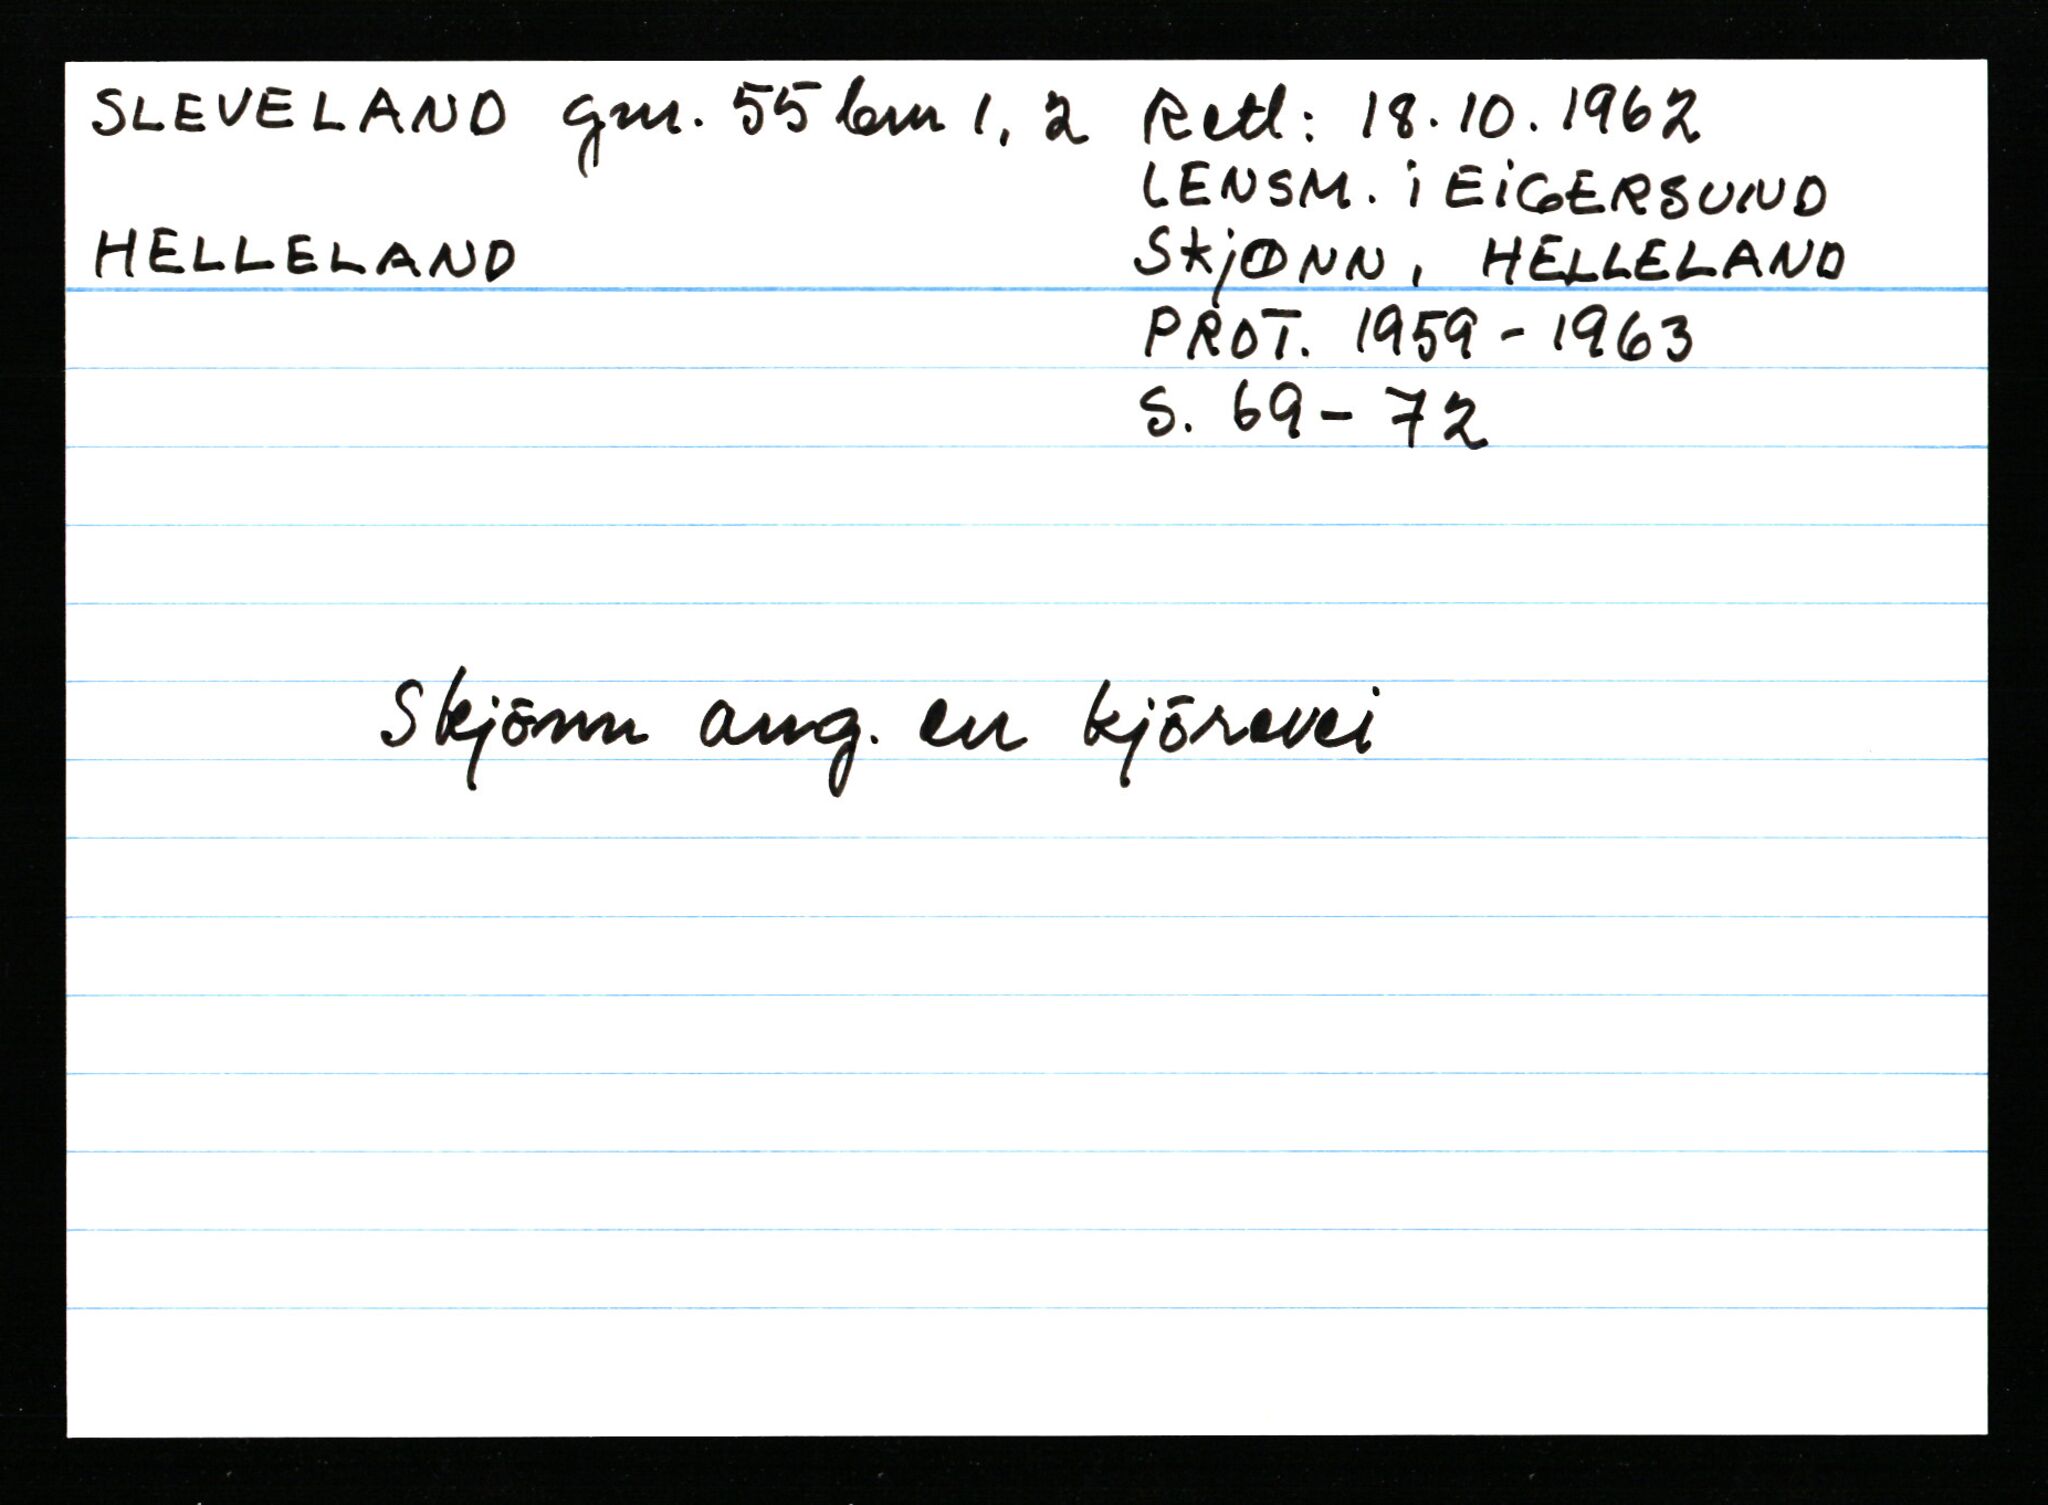 SLEVELAND gnr. 55 bnr 1, 2
HELLELAND
Retl: 18.10.1962
LENSM. i EIGERSUND
SkjØNN, HELLELAND
PROT. 1959-1963
S. 69-72
Skjönn ang. en kjörevei